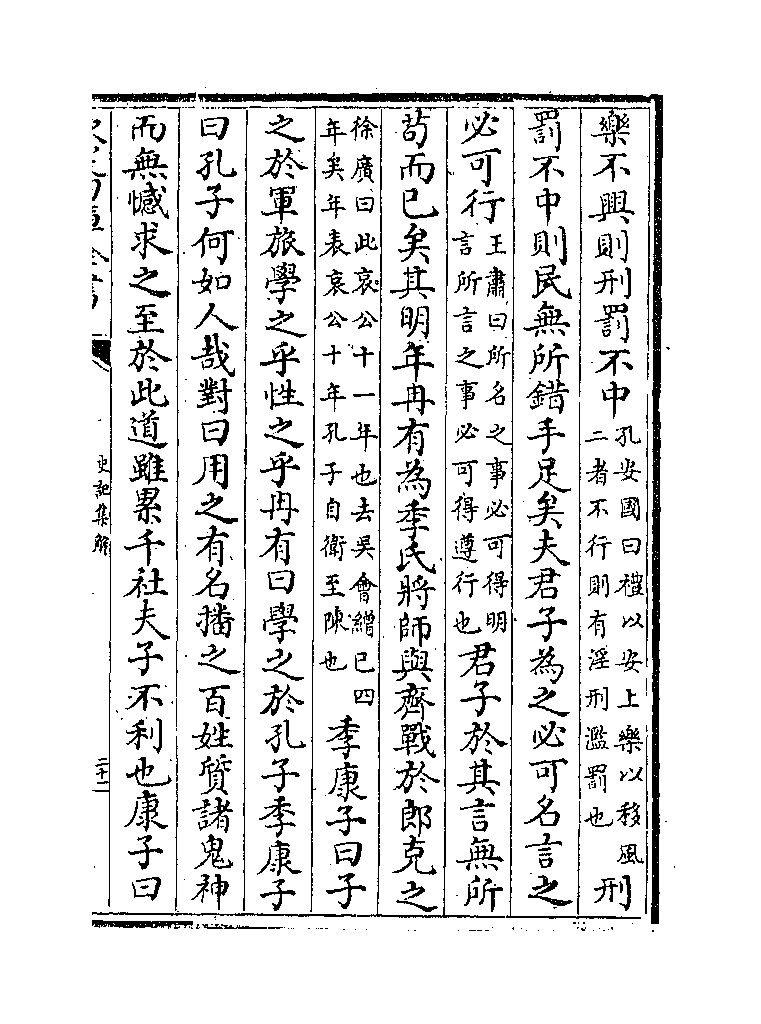 樂不興則刑罰不中
孔安國曰禮以安上樂以移風
二者不行則有淫刑濫罰也
刑
罰不中則民無所錯手足矣夫君子為之必可名言之
必可行
王肅曰所名之事必可得明
言所言之事必可得遵行也
君子於其言無所
苟而已矣其明年冉有為季氏將師與齊戰於郎克之
徐廣曰此哀公十一年也去吳會繒已四
年矣年表哀公十年孔子自衛至陳也
季康子曰子
之於軍旅學之乎性之乎冉有曰學之於孔子季康子
曰孔子何如人哉對曰用之有名播之百姓質諸鬼神
而無憾求之至於此道雖累千社夫子不利也康子曰
史記集解
二十二